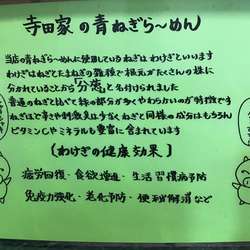 寺田家の青ねぎら〜めん
当店の青ねぎら〜めんに使用しているねぎはわけぎといいます
わけぎはねぎとたまねぎの雑種で根元がたくさんの株に
分かれていることから「分葱」と名付けられました
普通のねぎと比べて緑の部分が多くやわらかいのが特徴です
ねぎほど辛さや刺激臭は少なくねぎと同様の成分はもちろん
ビタミンCやミネラルも豊富に含まれています
[わけぎの健康効果]
疲労回復・食欲増進・生活習慣病予防
免疫力強化・老化予防・便秘解消など